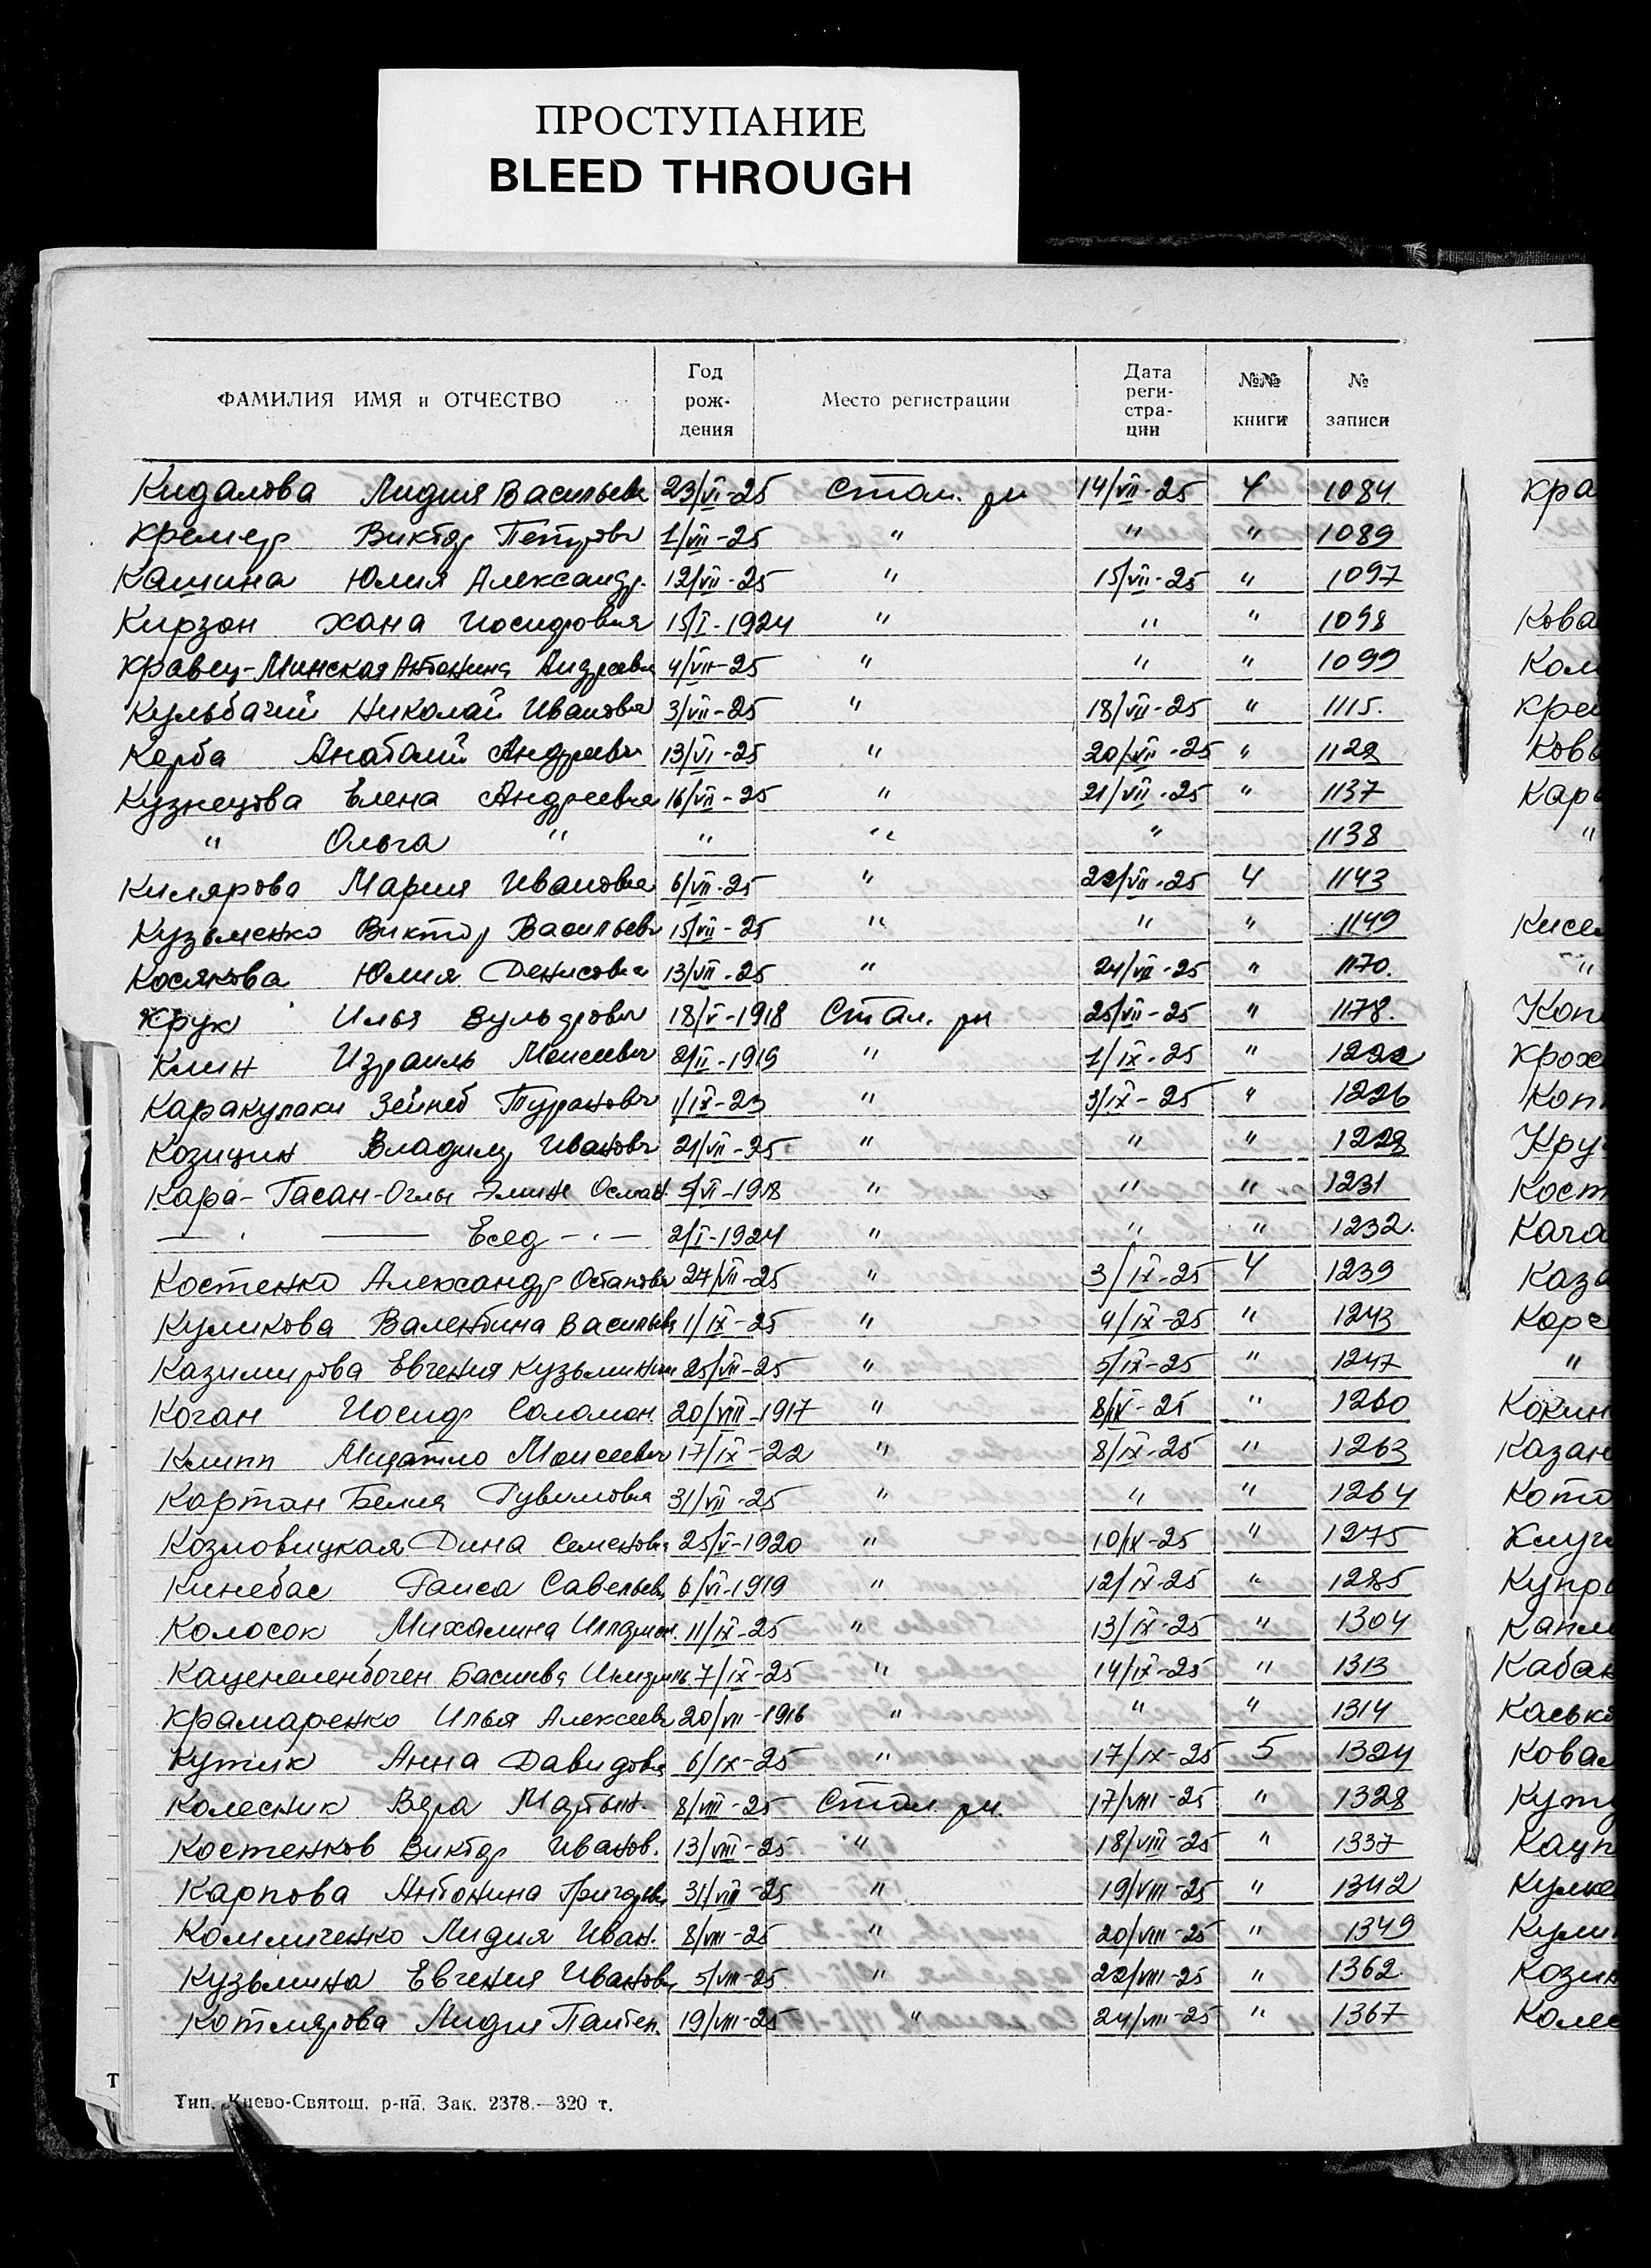 ПРОСТУПАНИЕ
BLEED THROUGH
ФАМИЛИЯ ИМЯ и ОТЧЕСТВО Год рождения Место регистрации Дата регистрации №№ книги № записи
Кидалова Лидия Васильевн 23/VI-25 Стал. рн 14/VII-25 4 1084
Кремер Виктор Петрович 1/VII-25 " " " 1089
Кашина Юлия Александр. 12/VII-25 " 15/VII-25 " 1097
Кирзон Хана Иосифовна 15/I-1924 " " " 1098
Кравец-Минская Антонина Андреевн 4/VII-25 " " " 1099
Кульбачий Николай Иванович 3/VII-25 " 18/VII-25 " 1115.
Корба Анатолий Андреевич 13/VI-25 " 20/VII-25 " 1129
Кузнецова Елена Андреевна 16/VII-25 " 21/VII-25 " 1137
" Ольга " " " " 1138
Килярова Мария Ивановна 6/VII-25 " 22/VII-25 4 1143
Кузьменко Виктор Васильевич 15/VII-25 " " " 1149
Косякова Юлия Денисовна 13/VII-25 " 24/VII-25 " 1170.
Крук Илья Вульфович 18/V-1918 Стал. рн 25/VII-25 " 1178.
Клин Израиль Моисеевич 2/II-1919 " 1/IX-25 " 1222
Каракулаки Зейнеб Туранович 1/IX-23 " 3/IX-25 " 1226
Козицин Владимир Иванович 21/VII-25 " " " 1228
Кара-Гасан-Оглы Эмине Осман. 5/VI-1918 " " " 1231
— " — Есед — " — 2/I-1924 " " " 1232.
Костенко Александр Остапович 27/VII-25 " 3/IX-25 4 1239
Куликова Валентина Васильевн 1/IX-25 " 4/IX-25 " 1243
Казимирова Евгения Кузьминичн 25/VII-25 " 5/IX-25 " 1247
Коган Иосиф Соломон. 20/VIII-1917 " 8/IX-25 " 1260
Клипп Моисеевич 17/IX-22 " 8/IX-25 " 1263
Картан Белия Рувимовна 31/VII-25 " " " 1264
Козловицкая Дина Семеновн 25/V-1920 " 10/IX-25 " 1275
Кинебас Раиса Савельевн 6/VI-1919 " 12/IX-25 " 1285
Колосок Михалина 11/IX-25 " 13/IX-25 " 1304
Каценеленбоген Басшева 7/IX-25 " 14/IX-25 " 1313
Крамаренко Илья Алексеевич 20/VII-1916 " " " 1314
Кутик Анна Давидовн 6/IX-25 " 17/IX-25 5 1324
Колесник Вера Мартын. 8/VIII-25 Стал. рн. 17/VIII-25 " 1328
Костенков Виктор Иванов. 13/VIII-25 " 18/VIII-25 " 1337
Карпова Антонина Григорьевн 31/VII-25 " 19/VIII-25 " 1342
Колличенко Лидия Иван. 8/VIII-25 " 20/VIII-25 " 1349
Кузьмина Евгения Ивановн 5/VIII-25 " 22/VIII-25 " 1362.
Котлярова Лидия Пантел. 19/VIII-25 " 24/VIII-25 " 1367
Тип. Киево-Святош. р-на. Зак. 2378.—320 т.